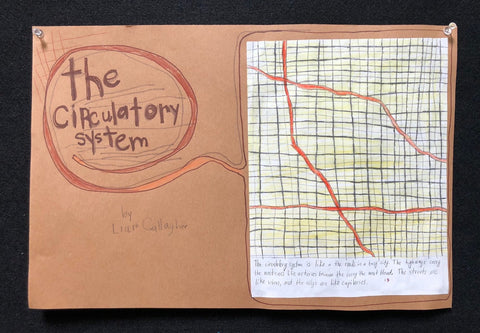 the
CiRculatory
system
by
Liam Gallagher
The circulatory system is like the roads in a busy city. The highways carry
the most cars like arteries because they carry the most blood. The streets are
like veins, and the alleys are like capillaries.